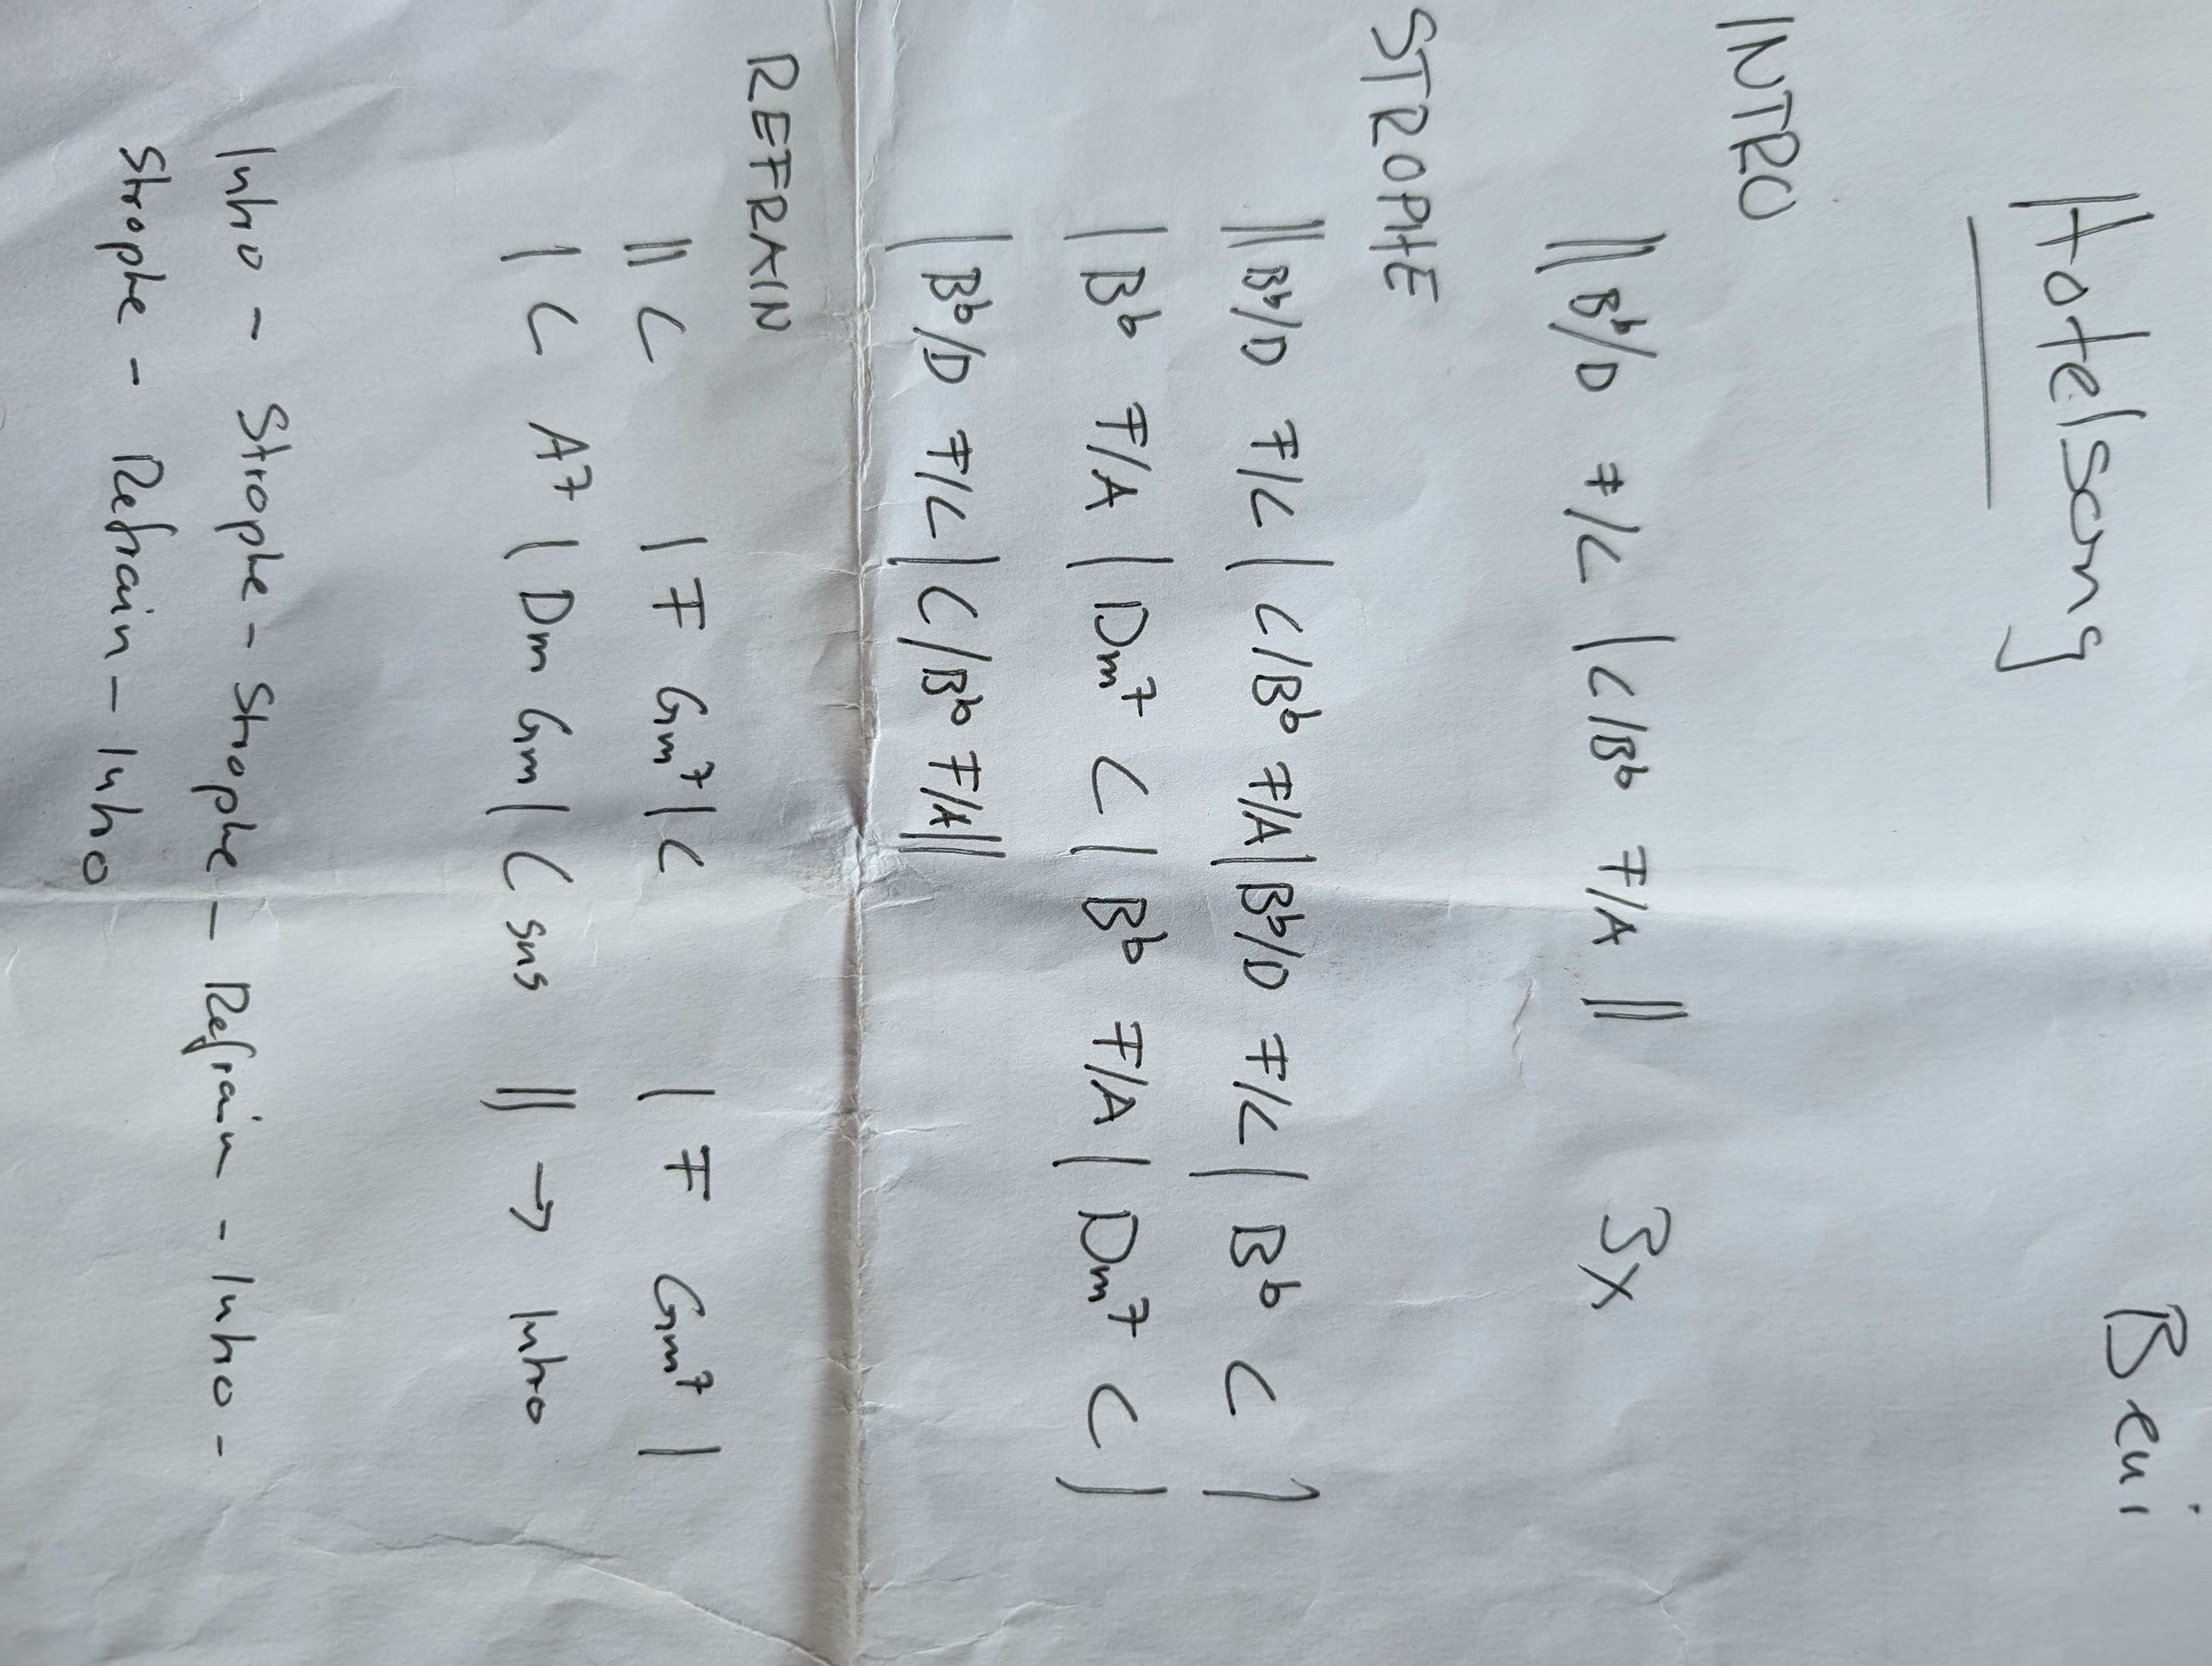 Beni
Hotelsong
INTRO
|| B♭/D F/C | C/B♭ F/A || 3x
STROPHE
|| B♭/D F/C | C/B♭ F/A | B♭/D F/C | B♭ C |
| B♭ F/A | Dm7 C | B♭ F/A | Dm7 C |
| B♭/D F/C | C/B♭ F/A ||
REFRAIN
|| C | F Gm7 | C | F Gm7 |
| C A7 | Dm Gm | C sus || → Intro
Intro - Strophe - Strophe - Refrain - Intro -
Strophe - Refrain - Intro